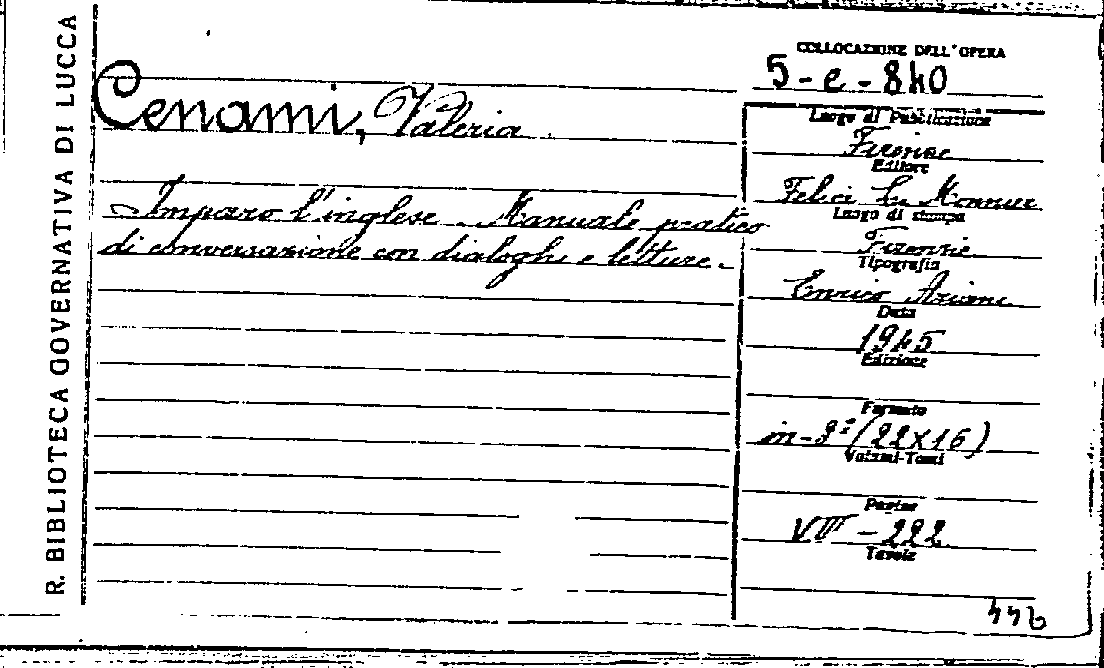 R. BIBLIOTECA GOVERNATIVA DI LUCCA
Cenami, Valeria.
Imparo l'inglese. Manuale pratico
di conversazione con dialoghi e letture.
COLLOCAZIONE DELL'OPERA
5-e-840
Luogo di Pubblicazione
Firenze
Editore
Felici Le Monnier
Luogo di stampa
Firenze
Tipografia
Enrico Ariani
Data
1945
Edizione
Formato
in-8° (22x16)
Volumi-Tomi
Pagine
VIII - 222
Tavole